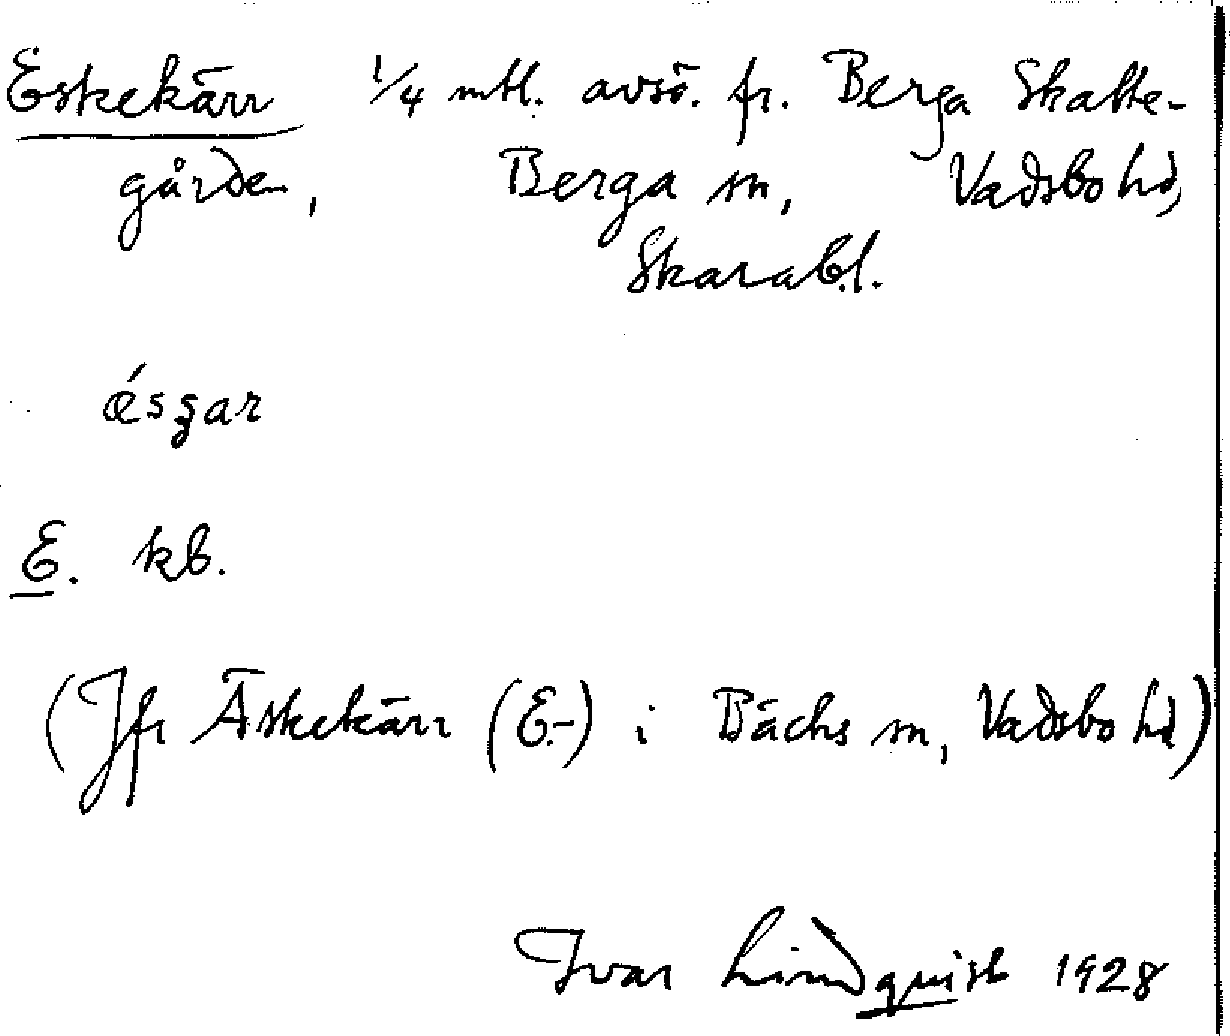 Eskekärr 1/4 mtl. avsö. fr. Berga Skatte-
gården, Berga sn, Vadsbo hd,
Skarab.l.
ésʒar
E. kb.
(Jfr Äskekärr (E-) i Bäcks sn, Vadsbo hd)
Ivar Lindquist 1928